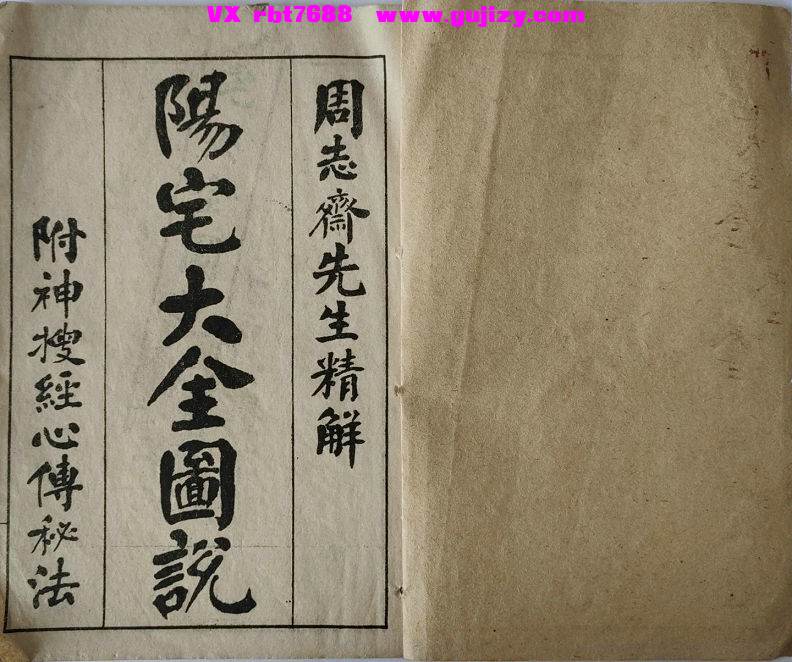 VX rbt7688 www.gujizy.com
周志齋先生精解
陽宅大全圖説
附神搜經心傳秘法